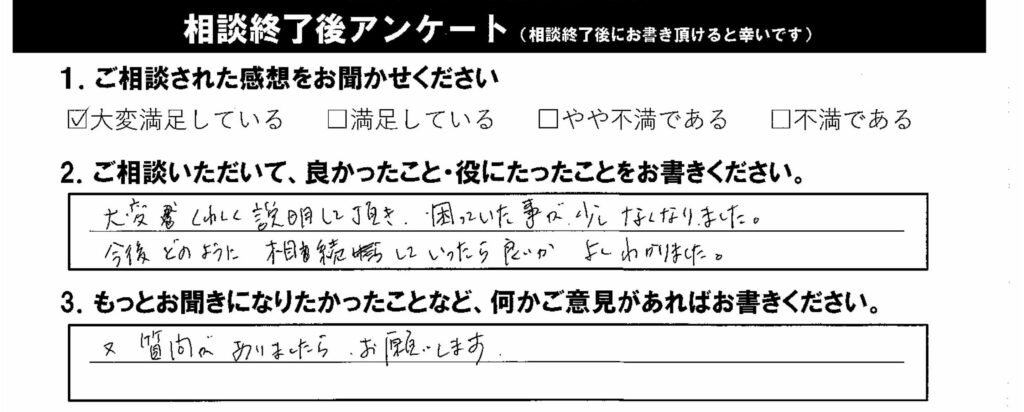 相談終了後アンケート（相談終了後にお書き頂けると幸いです）
1. ご相談された感想をお聞かせください
☑大変満足している □満足している □やや不満である □不満である
2. ご相談いただいて、良かったこと・役にたったことをお書きください。
大変 くわしく説明して頂き、困っていた事が少しなくなりました。
今後どのように相続 していったら良いか よくわかりました。
3. もっとお聞きになりたかったことなど、何かご意見があればお書きください。
又 質問が ありましたら お願いします